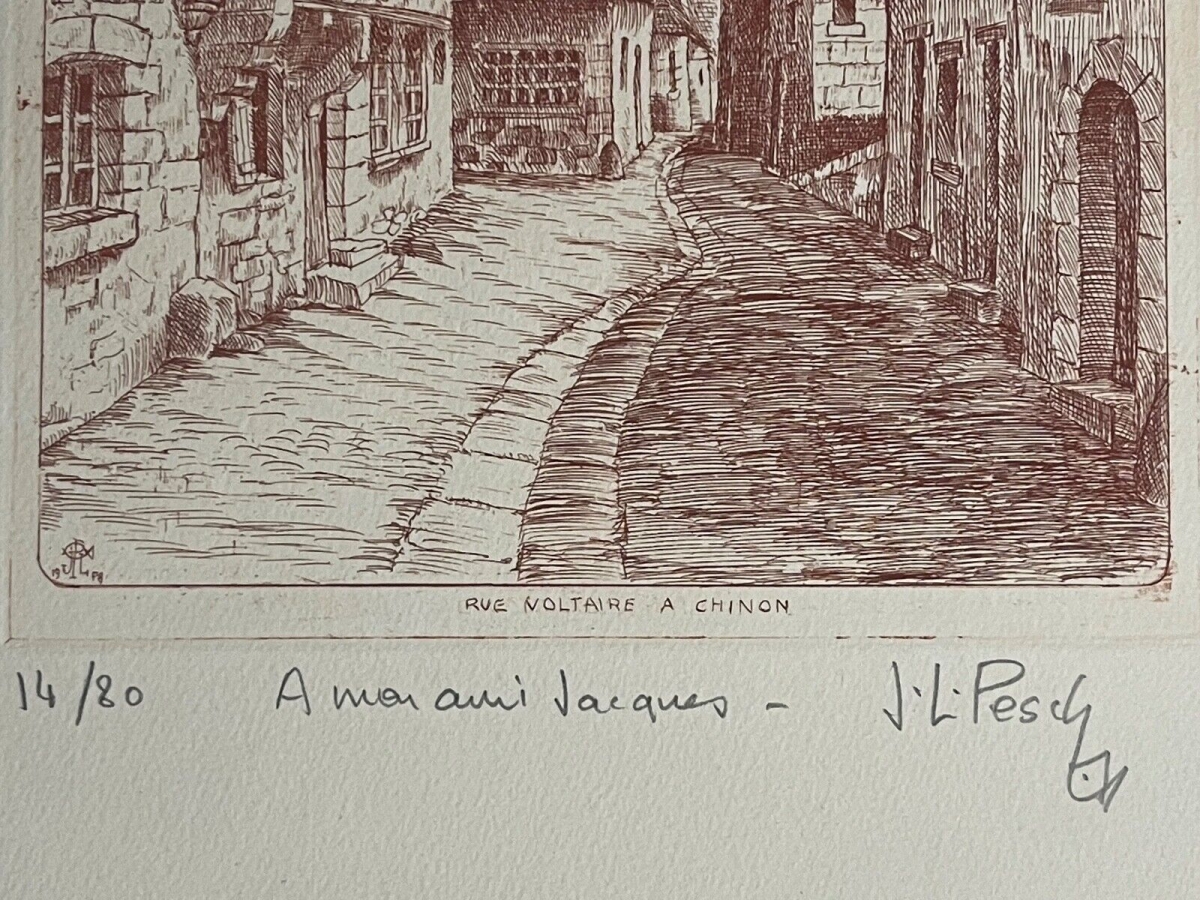 RUE VOLTAIRE A CHINON
14/80 A mon ami Jacques - J.L. Pesch